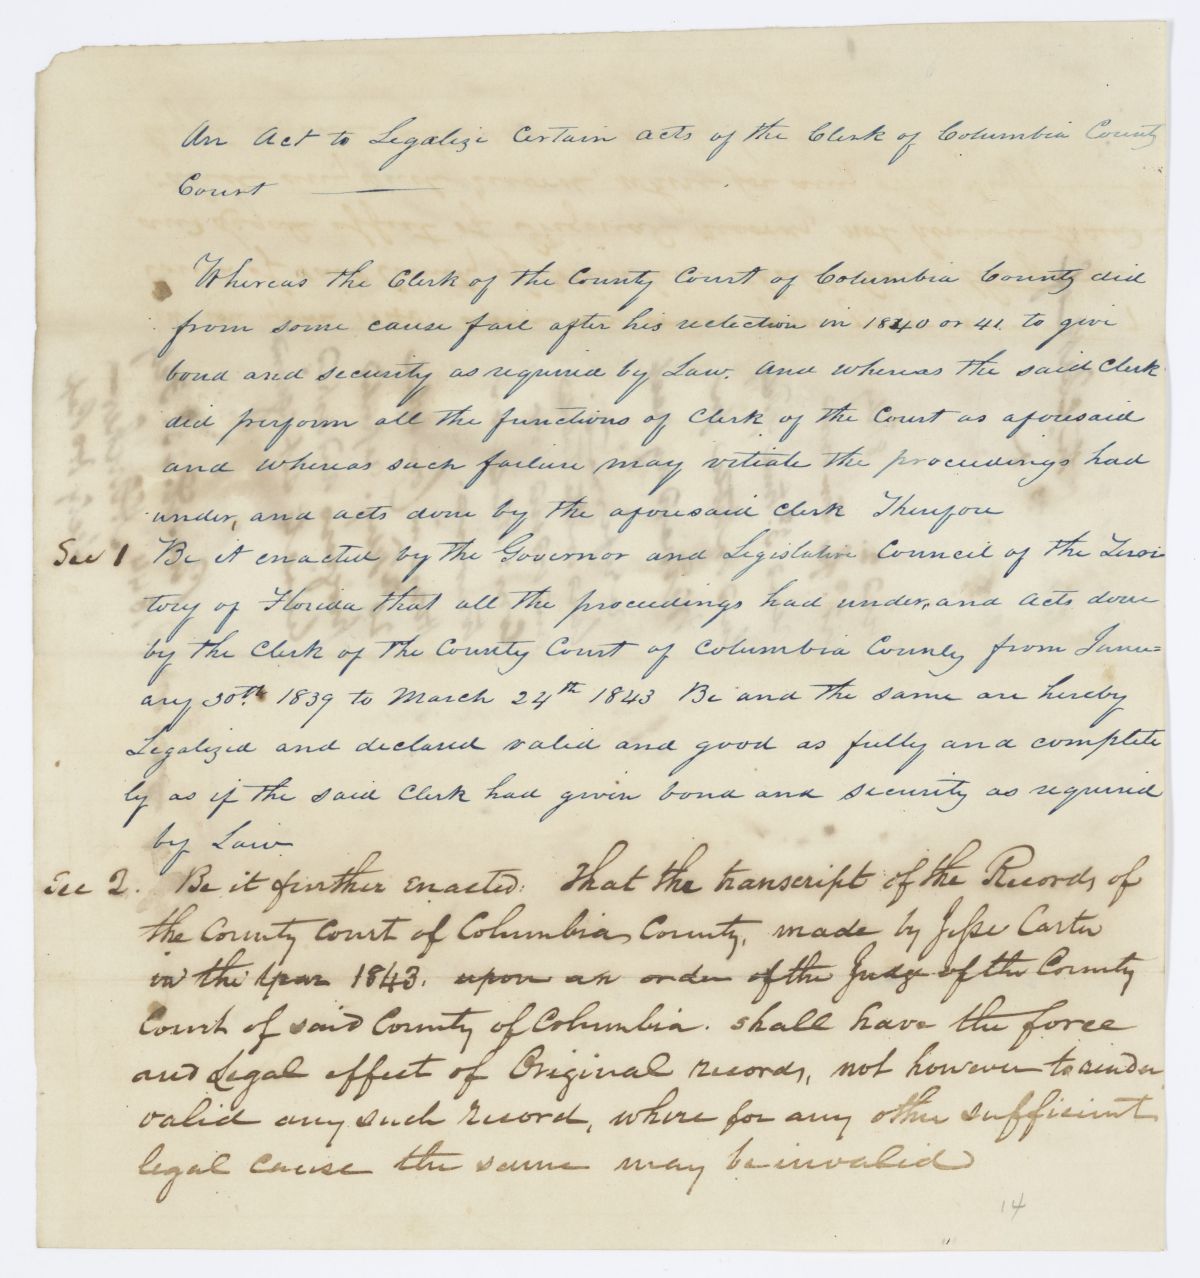 An Act to Legalize Certain acts of the Clerk of Columbia County
Court
Whereas the Clerk of the County Court of Columbia County did
from some cause fail after his relection in 1840 or 41. to give
bond and security as required by Law. And whereas the said Clerk
did perform all the functions of Clerk of the Court as aforesaid
and whereas such failure may vitiate the proceedings had
under, and acts done by the aforesaid Clerk Therefore
Sec 1 Be it enacted by the Governor and Legislative Council of the Terri
tory of Florida that all the proceedings had under, and acts done
by the Clerk of the County Court of Columbia County from Janu=
ary 30th. 1839 to March 24th 1843 Be and the same are hereby
Legalized and declared valid and good as fully and complete
ly as if the said Clerk had given bond and security as required
by Law
Sec 2. Be it further enacted: That the transcript of the Records of
the County Court of Columbia County, made by Jesse Carter
in the year 1843. upon an order of the Judge of the County
Court of said County of Columbia. shall have the force
and Legal effect of Original records, not however to render
valid any such record, where for any other sufficient
legal cause the same may be invalid
14